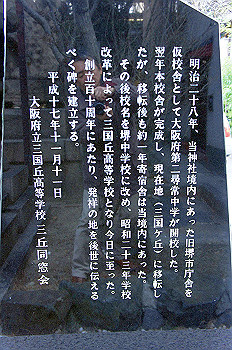 明治二十八年、当神社境内にあった旧堺市庁舎を
仮校舎として大阪府第二尋常中学が開校した。
翌年本校舎が完成し、現在地（三国ヶ丘）に移転し
たが、移転後も約一年寄宿舎は当境内にあった。
その後校名を堺中学校に改め、昭和二十三年学校
改革によって三国丘高等学校となり今日に至った。
創立百十周年にあたり、発祥の地を後世に伝える
べく碑を建立する。
平成十七年十一月十一日
大阪府立三国丘高等学校 三丘同窓会